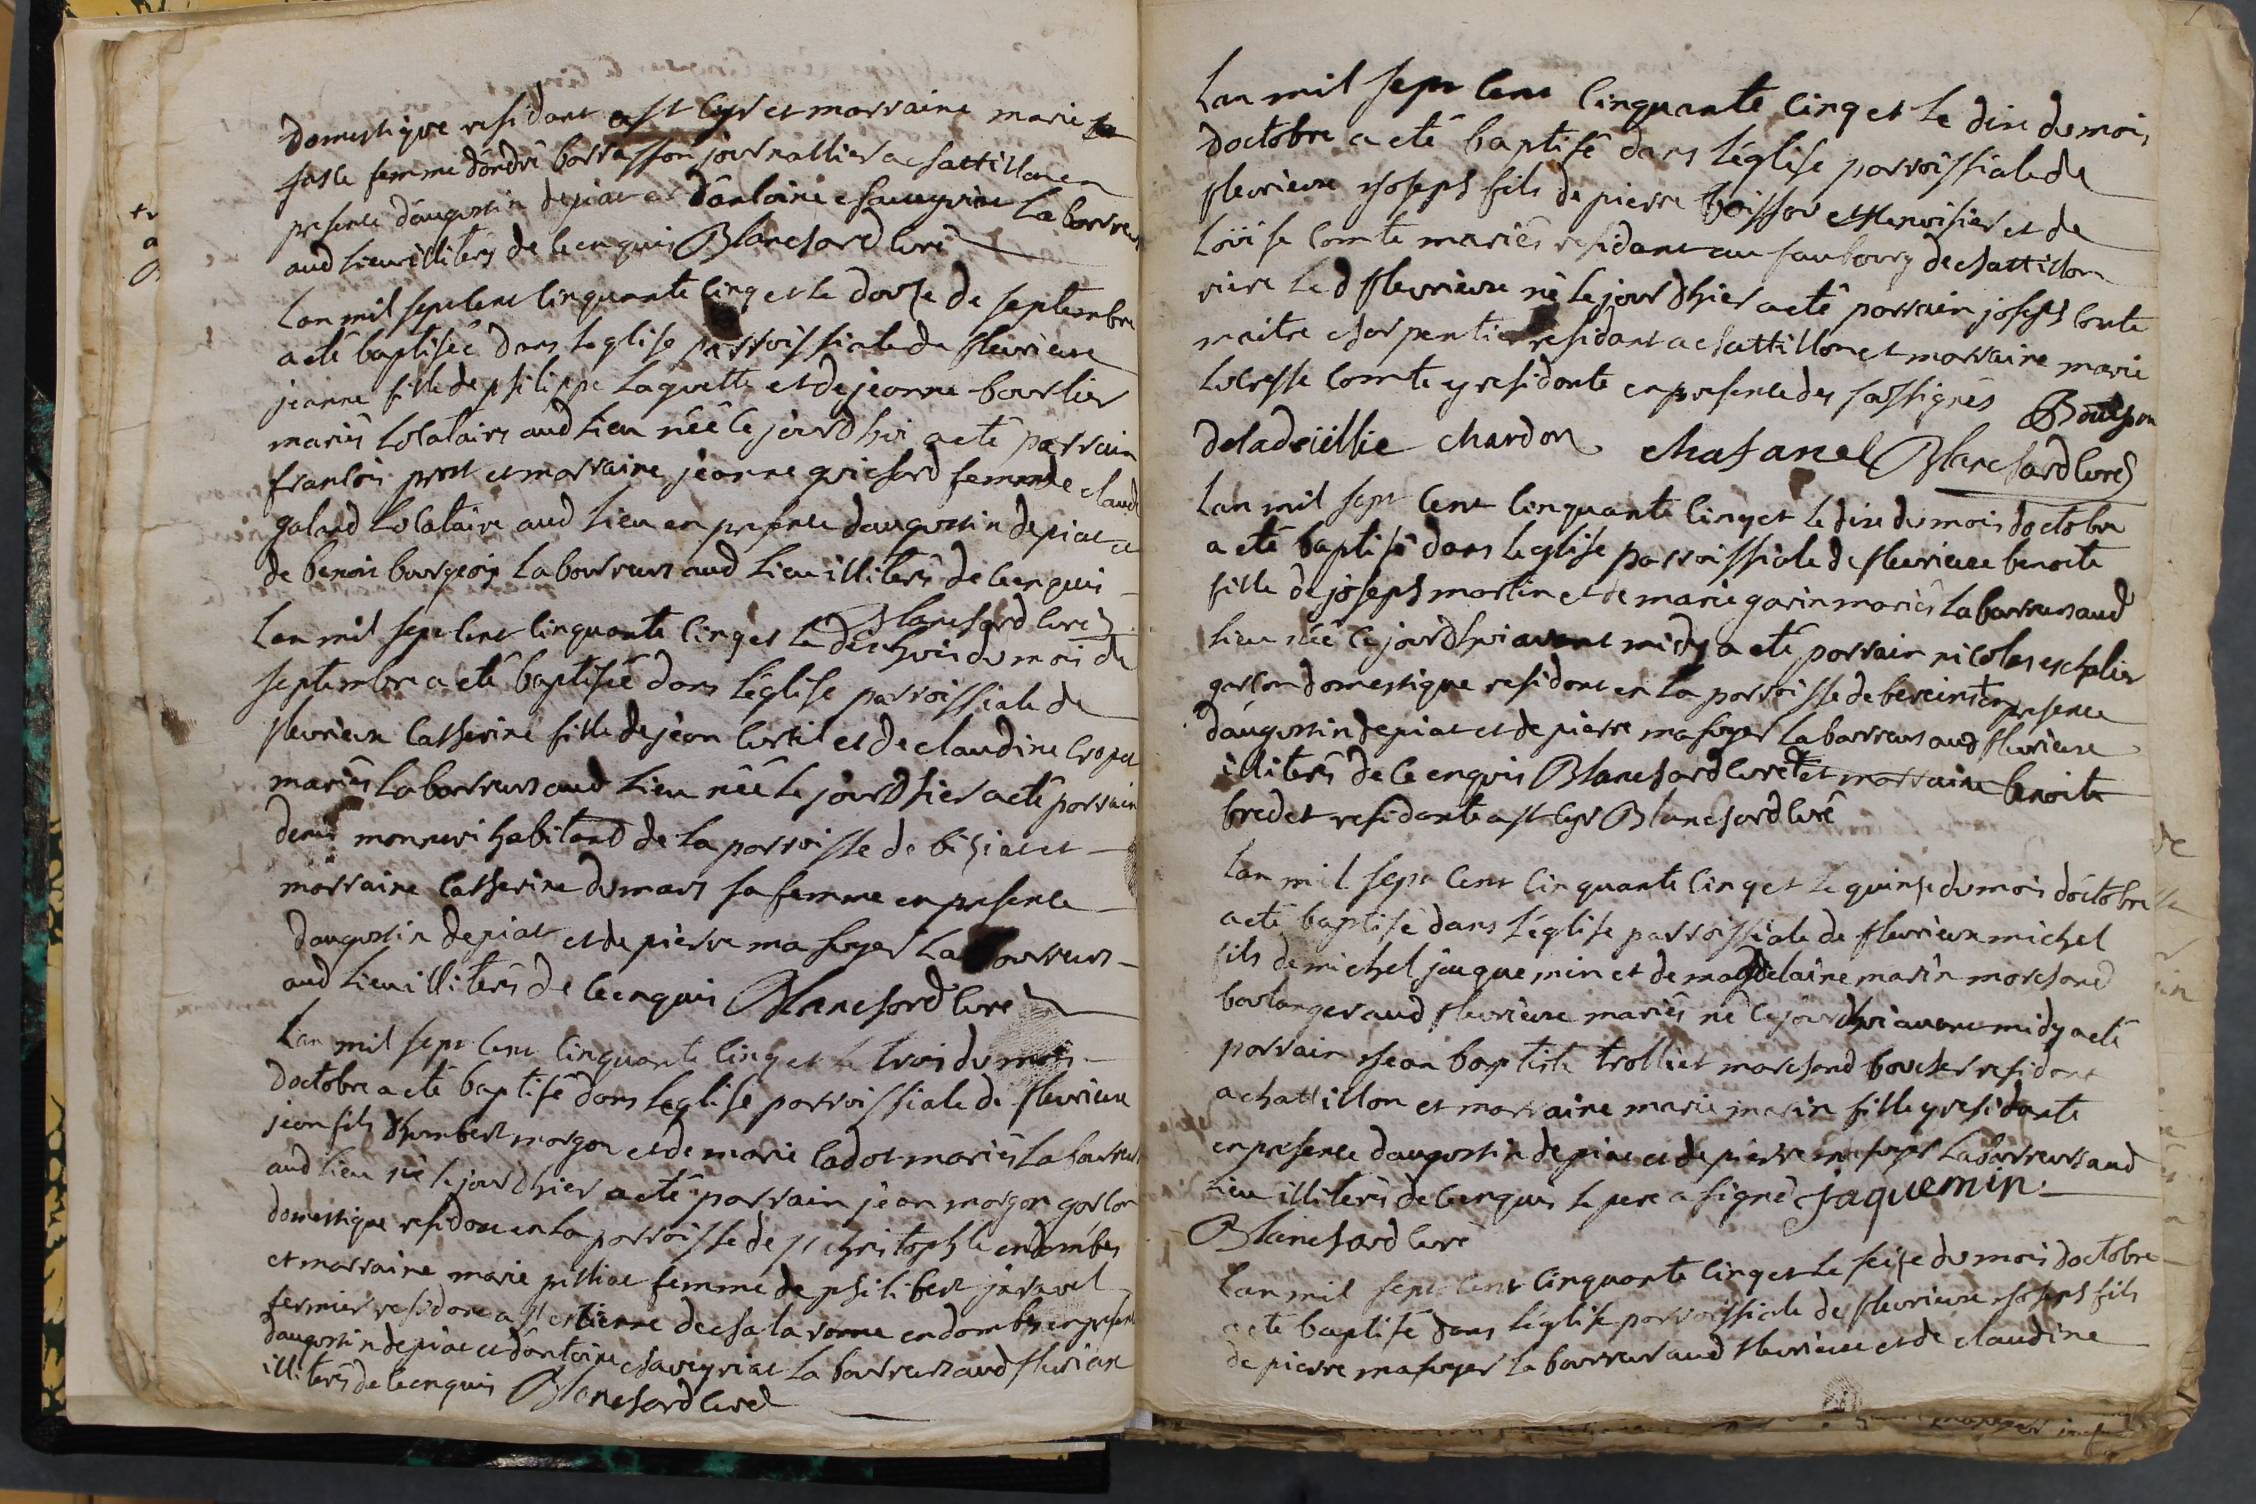 domestique residant a st Cyr et marraine marie
femme dandré borrasson journallier a chattillon en
presence daugustin depiat et dantoine chaveyriat Laboureurs
aud Lieu illiterés de ce enquis Blanchard Curé
Lan mil sept Cent Cinquante Cinq et le douze de septembre
a eté baptiséé dans leglise parroissiale de fleurieux
jeanne fille de philippe Laquette et de jeanne bourlier
mariés Locatairs aud Lieu néé ce jourdhui a eté parrain
francois prost et marraine jeanne guichard femme de claude
galand Locataire aud Lieu en presence daugustin depiat et
de benoit bourgeois Laboureurs aud Lieu illiterés de ce enquis
Blanchard Curé
Lan mil sept Cent Cinquante Cinq et le dixhuit du mois de
septembre a eté baptiséé dans léglise parroissiale de
fleurieux Catherine fille de jean Curtil et de claudine Cropet
mariés Laboureurs aud Lieu néé le jourdhier a eté parrain
denis monneri habitant de la parroisse de bisiat et
marraine Catherine dumars sa femme en presence
daugustin depiat et de pierre masuyer Laboureurs
aud Lieu illiterés de ce enquis Blanchard Curé
Lan mil sept Cent Cinquante Cinq et le trois du mois
doctobre a eté baptisé dans leglise parroissiale de fleurieux
jean fils dhumbert morgon et de marie Cadot mariés Laboureurs
aud Lieu né le jourdhier a eté parrain jean morgon garcon
domestique residant en La parroisse de st christophle en dombes
et marraine marie pilliat femme de philibert
fermier residant a st etienne de chalaronne en dombes en presence
daugustin depiat et dantoine chaveyriat Laboureurs aud fleurieux
illiterés de ce enquis Blanchard Curé
Lan mil sept Cent Cinquante Cinq et le dix du mois
doctobre a eté baptisé dans léglise parroissiale de
fleurieux joseph fils de pierre boisson et de
Loüise Comte mariés residant au faubourg de chattillon
riere led fleurieux né le jourdhier a eté parrain joseph Comte
maitre charpentier residant a chattillon et marraine marie
Lucresse Comte y residante en presence des sassignés Boisson
deladoielllie chardon chasanel Blanchard Curé
Lan mil sept Cent Cinquante Cinq et le dix du mois doctobre
a eté baptisé dans leglise parroissiale de fleurieux benoite
fille de joseph martin et de marie garin mariés Laboureurs aud
Lieu néé ce jourdhui avant midy a eté parrain nicolas eschalier
garcon domestique residant en La parroisse de bereins en presence
daugustin depiat et de pierre masuyer Laboureurs aud fleurieux
illiterés de ce enquis Blanchard Curé et marraine benoite
bredet residante a st Cyr Blanchard Curé
Lan mil sept Cent Cinquante Cinq et le quinse du mois doctobre
a eté baptisé dans léglise parroissiale de fleurieux michel
fils de michel jaquemin et de magdelaine marin marchand
boulanger aud fleurieux mariés né ce jourdhui avant midy a eté
parrain jean baptiste trolliet marchand boucher residant
a chattillon et marraine marie marin fille y residante
en presence daugustin depiat et de pierre masuyer Laboureurs aud
Lieu illiterés de ce enquis le pere a signé jaquemin
Blanchard Curé
Lan mil sept Cent Cinquante Cinq et le seise du mois doctobre
a eté baptisé dans léglise parroissiale de fleurieux joseph fils
de pierre masuyer Laboureur aud fleurieux et de claudine